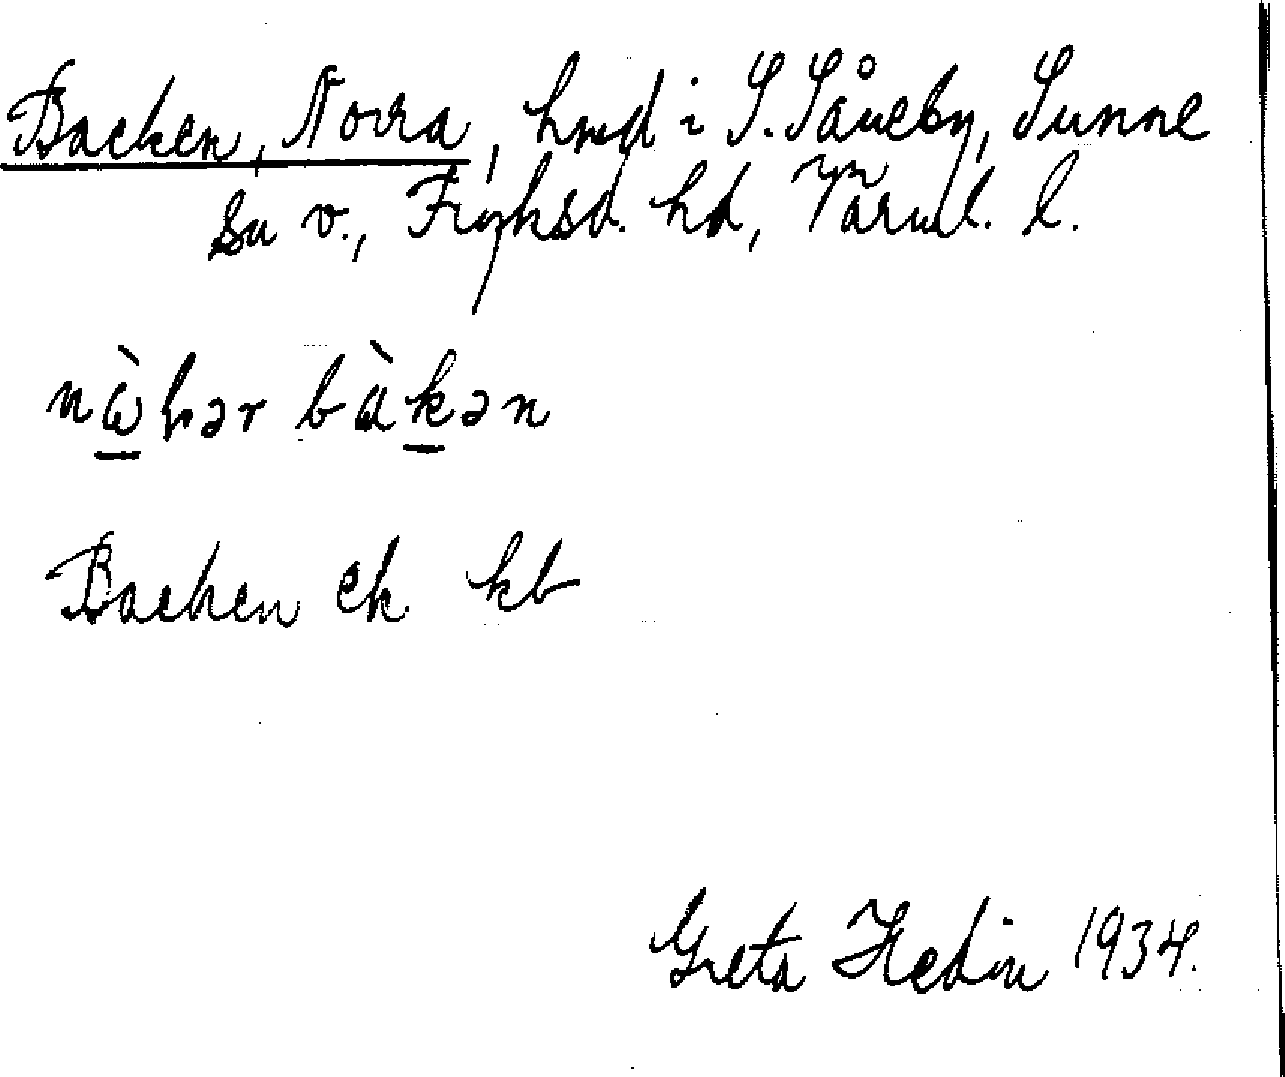 Backen, Norra, hmd i S. Såneby, Sunne
sn v., Fryksd. hd, Värml. l.
bàkən
Backen ek kb
Greta Hedin 1934.